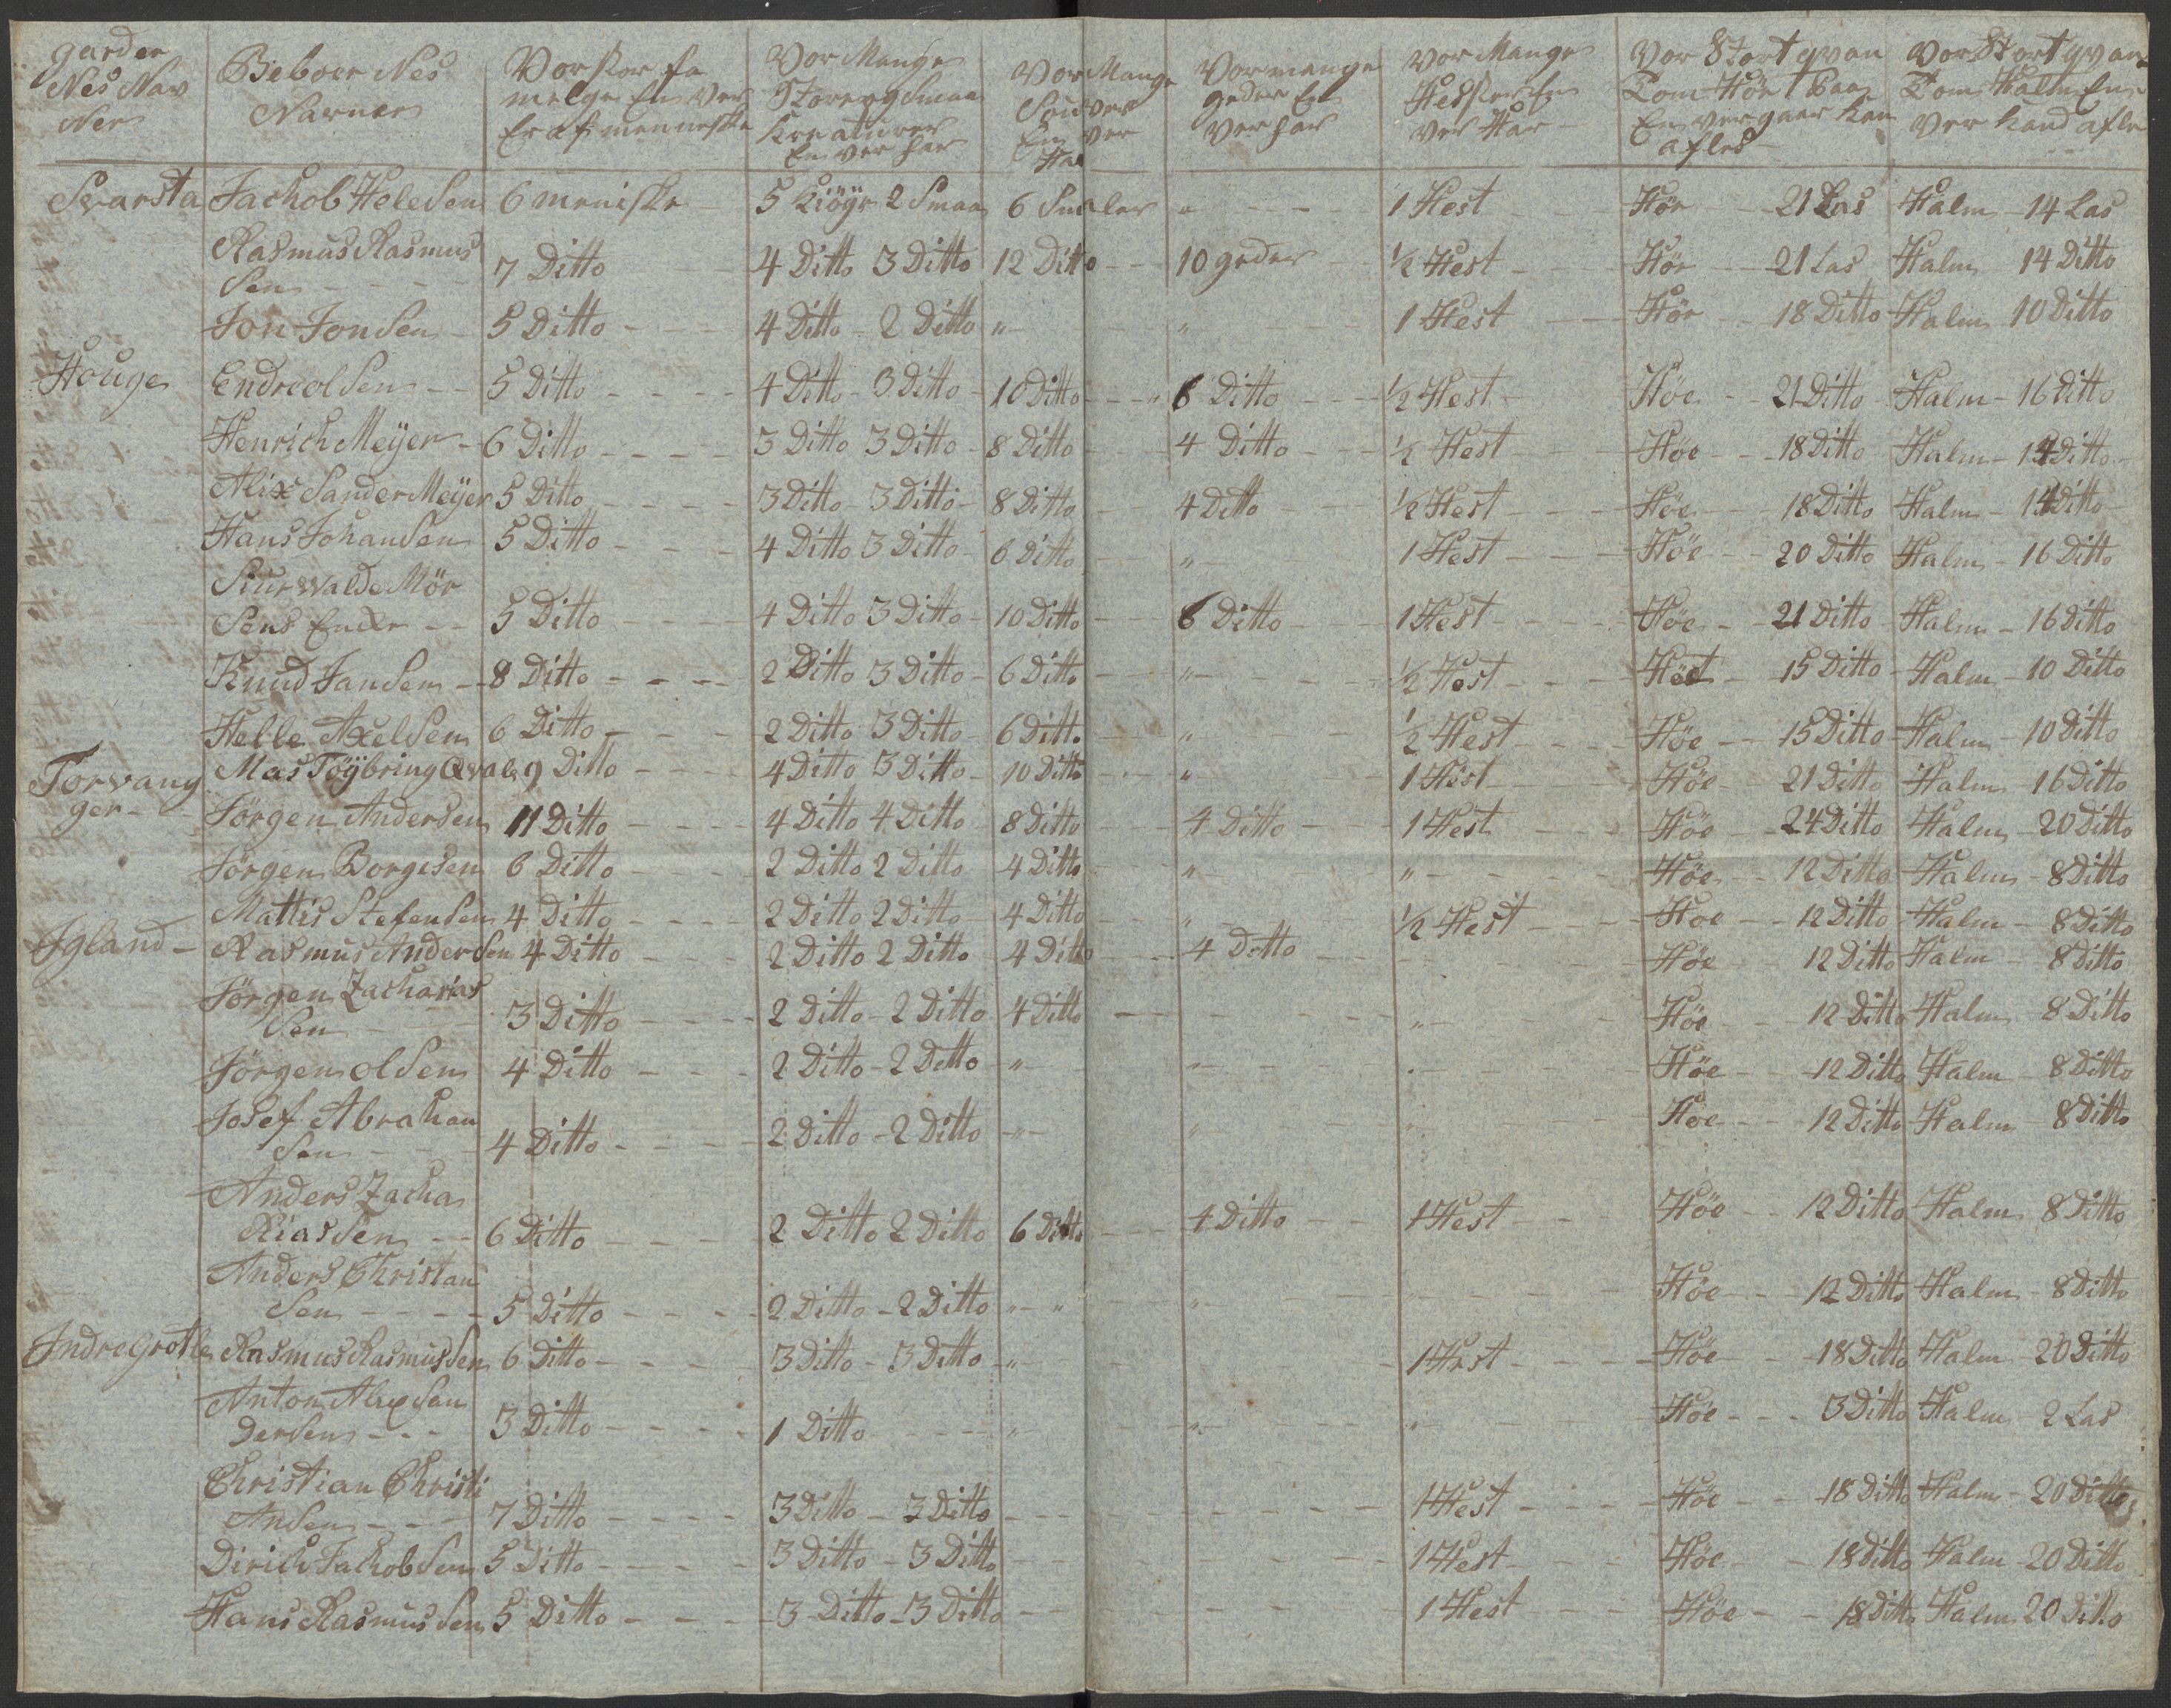 garder Nes Nav Ner | Beboer Nes Navner | Vor stor fa melge En Ver Er af menneske | Vor Mange Store og Smaa Kreaturer En ver har | Vor Mange En ver Har | Vor mange geder En Ver har | Vor Mange Hester En ver Har | Vor Stort qvan Tom Höe Paa En ver gaar kan afles | Vor Stort qvan Tom Halm En ver kand afle
Svarsta Jachob HeleSen 6 meniske 5 Kiöyr 2 Smaa 6 Smaler " 1 Hest Höe 21 Las Halm 14 Las
Rasmus Rasmus
Sen 7 Ditto 4 Ditto 3 Ditto 12 Ditto 10 geder ½ Hest Höe 21 Las Halm 14 Ditto
Jon JonSen 5 Ditto 4 Ditto 2 Ditto " " 1 Hest Höe 18 Ditto Halm 10 Ditto
Houge EndreolSen 5 Ditto 4 Ditto 3 Ditto 10 Ditto 6 Ditto ½ Hest Höe 21 Ditto Halm 16 Ditto
Henrich Meÿer 6 Ditto 3 Ditto 3 Ditto 8 Ditto 4 Ditto ½ Hest Höe 18 Ditto Halm 14 Ditto
Alix Sander Meÿer 5 Ditto 3 Ditto 3 Ditto 8 Ditto 4 Ditto ½ Hest Höe 18 Ditto Halm 14 Ditto
Hans JohanSen 5 Ditto 4 Ditto 3 Ditto 6 Ditto " 1 Hest Höe 20 Ditto Halm 16 Ditto
Siurwalde Mör
Sens Encke 5 Ditto 4 Ditto 3 Ditto 10 Ditto 6 Ditto 1 Hest Höe 21 Ditto Halm 16 Ditto
Knud JanSen 8 Ditto 2 Ditto 3 Ditto 6 Ditto " ½ Hest Höe 15 Ditto Halm 10 Ditto
Helle AxelSen 6 Ditto 2 Ditto 3 Ditto 6 Ditto " ½ Hest Höe 15 Ditto Halm 10 Ditto
Torvang Mas Töÿbring Qvale 9 Ditto 4 Ditto 3 Ditto 10 Ditto " 1 Hest Höe 21 Ditto Halm 16 Ditto
ger Jörgen AnderSen 11 Ditto 4 Ditto 4 Ditto 8 Ditto 4 Ditto 1 Hest Höe 24 Ditto Halm 20 Ditto
Jörgen Borgesen 6 Ditto 2 Ditto 2 Ditto 4 Ditto " " Höe 12 Ditto Halm 8 Ditto
Mattis StefenSen 4 Ditto 2 Ditto 2 Ditto 4 Ditto " ½ Hest Höe 12 Ditto Halm 8 Ditto
Igland Rasmus AnderSen 4 Ditto 2 Ditto 2 Ditto 4 Ditto 4 Ditto Höe 12 Ditto Halm 8 Ditto
Jörgen Zacharias
Sen 3 Ditto 2 Ditto 2 Ditto 4 Ditto " Höe 12 Ditto Halm 8 Ditto
Jörgen olSen 4 Ditto 2 Ditto 2 Ditto " " Höe 12 Ditto Halm 8 Ditto
Josef Abrahan
Sen 4 Ditto 2 Ditto 2 Ditto " " " Höe 12 Ditto Halm 8 Ditto
Anders Zacha
RiasSen 6 Ditto 2 Ditto 2 Ditto 6 Ditto 4 Ditto 1 Hest Höe 12 Ditto Halm 8 Ditto
Anders Christan
Sen 5 Ditto 2 Ditto 2 Ditto " " " " Höe 12 Ditto Halm 8 Ditto
Indregrotle Rasmus RasmusSen 6 Ditto 3 Ditto 3 Ditto " 1 Hest Höe 18 Ditto Halm 20 Ditto
Anton AlexSan
derSen 3 Ditto 1 Ditto " " " Höe 3 Ditto Halm 2 Las
Christian Christi
AnSen 7 Ditto 3 Ditto 3 Ditto 1 Hest Höe 18 Ditto Halm 20 Ditto
Dirich JachobSen 5 Ditto 3 Ditto 3 Ditto 1 Hest Höe 18 Ditto Halm 20 Ditto
Hans RasmusSen 5 Ditto 3 Ditto 3 Ditto 1 Hest Höe 18 Ditto Halm 20 Ditto